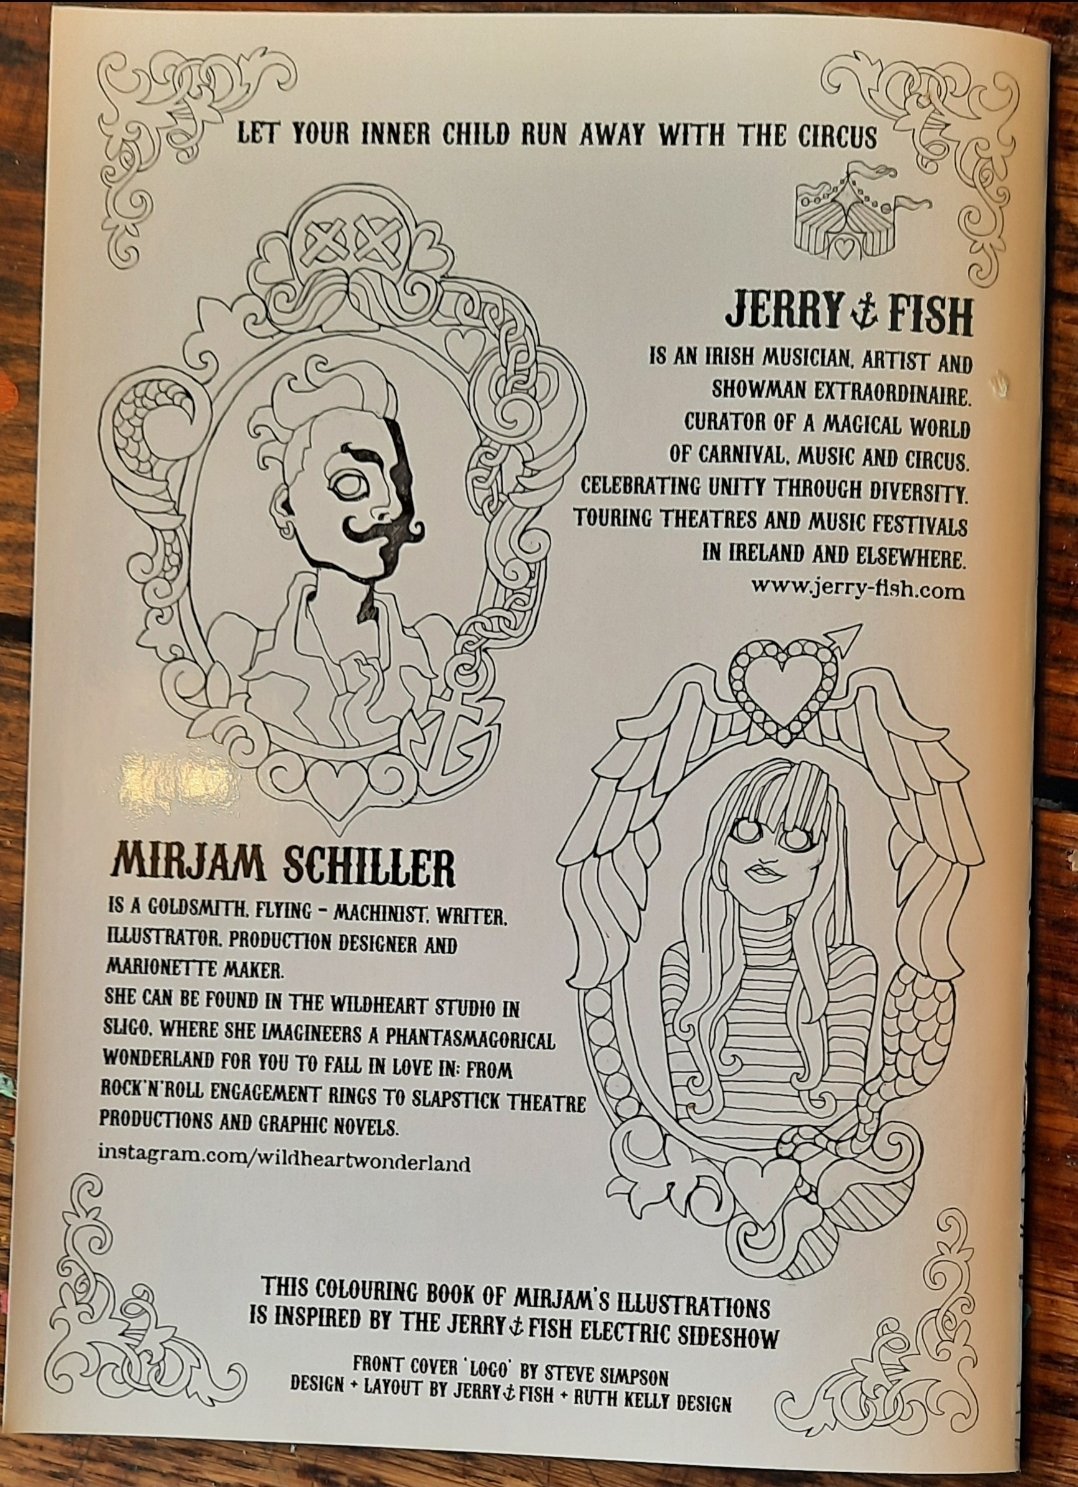 LET YOUR INNER CHILD RUN AWAY WITH THE CIRCUS
JERRY⚓FISH
IS AN IRISH MUSICIAN, ARTIST AND
SHOWMAN EXTRAORDINAIRE.
CURATOR OF A MAGICAL WORLD
OF CARNIVAL, MUSIC AND CIRCUS.
CELEBRATING UNITY THROUGH DIVERSITY.
TOURING THEATRES AND MUSIC FESTIVALS
IN IRELAND AND ELSEWHERE.
www.jerry-fish.com
MIRJAM SCHILLER
IS A GOLDSMITH, FLYING - MACHINIST, WRITER,
ILLUSTRATOR, PRODUCTION DESIGNER AND
MARIONETTE MAKER.
SHE CAN BE FOUND IN THE WILDHEART STUDIO IN
SLIGO, WHERE SHE IMAGINEERS A PHANTASMAGORICAL
WONDERLAND FOR YOU TO FALL IN LOVE IN: FROM
ROCK'N'ROLL ENGAGEMENT RINGS TO SLAPSTICK THEATRE
PRODUCTIONS AND GRAPHIC NOVELS.
instagram.com/wildheartwonderland
THIS COLOURING BOOK OF MIRJAM'S ILLUSTRATIONS
IS INSPIRED BY THE JERRY⚓FISH ELECTRIC SIDESHOW
FRONT COVER 'LOGO' BY STEVE SIMPSON
DESIGN + LAYOUT BY JERRY⚓FISH + RUTH KELLY DESIGN